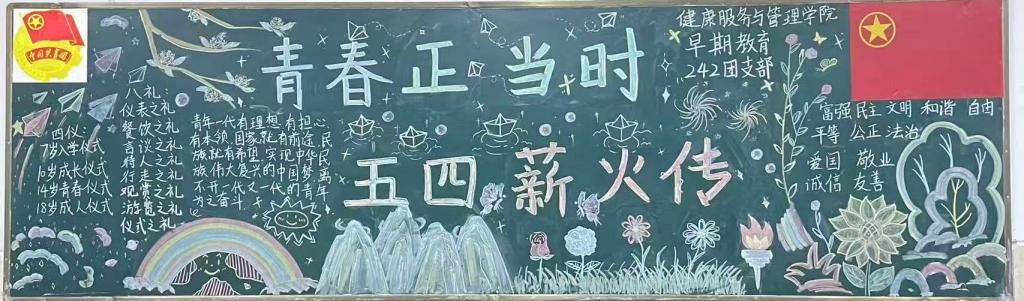 中国共青团
青春正当时
五四薪火传
健康服务与管理学院
早期教育
242团支部
八礼：
仪表之礼
餐饮之礼
言谈之礼
待人之礼
行走之礼
观赏之礼
游览之礼
仪式之礼
四仪：
7岁入学仪式
10岁成长仪式
14岁青春仪式
18岁成人仪式
青年一代有理想有担心
有本领国家就有前途民
族就有希望实现中华民
族伟大复兴的中国梦离
不开一代又一代的青年
为之奋斗
富强 民主 文明 和谐 自由
平等 公正 法治
爱国 敬业
诚信 友善